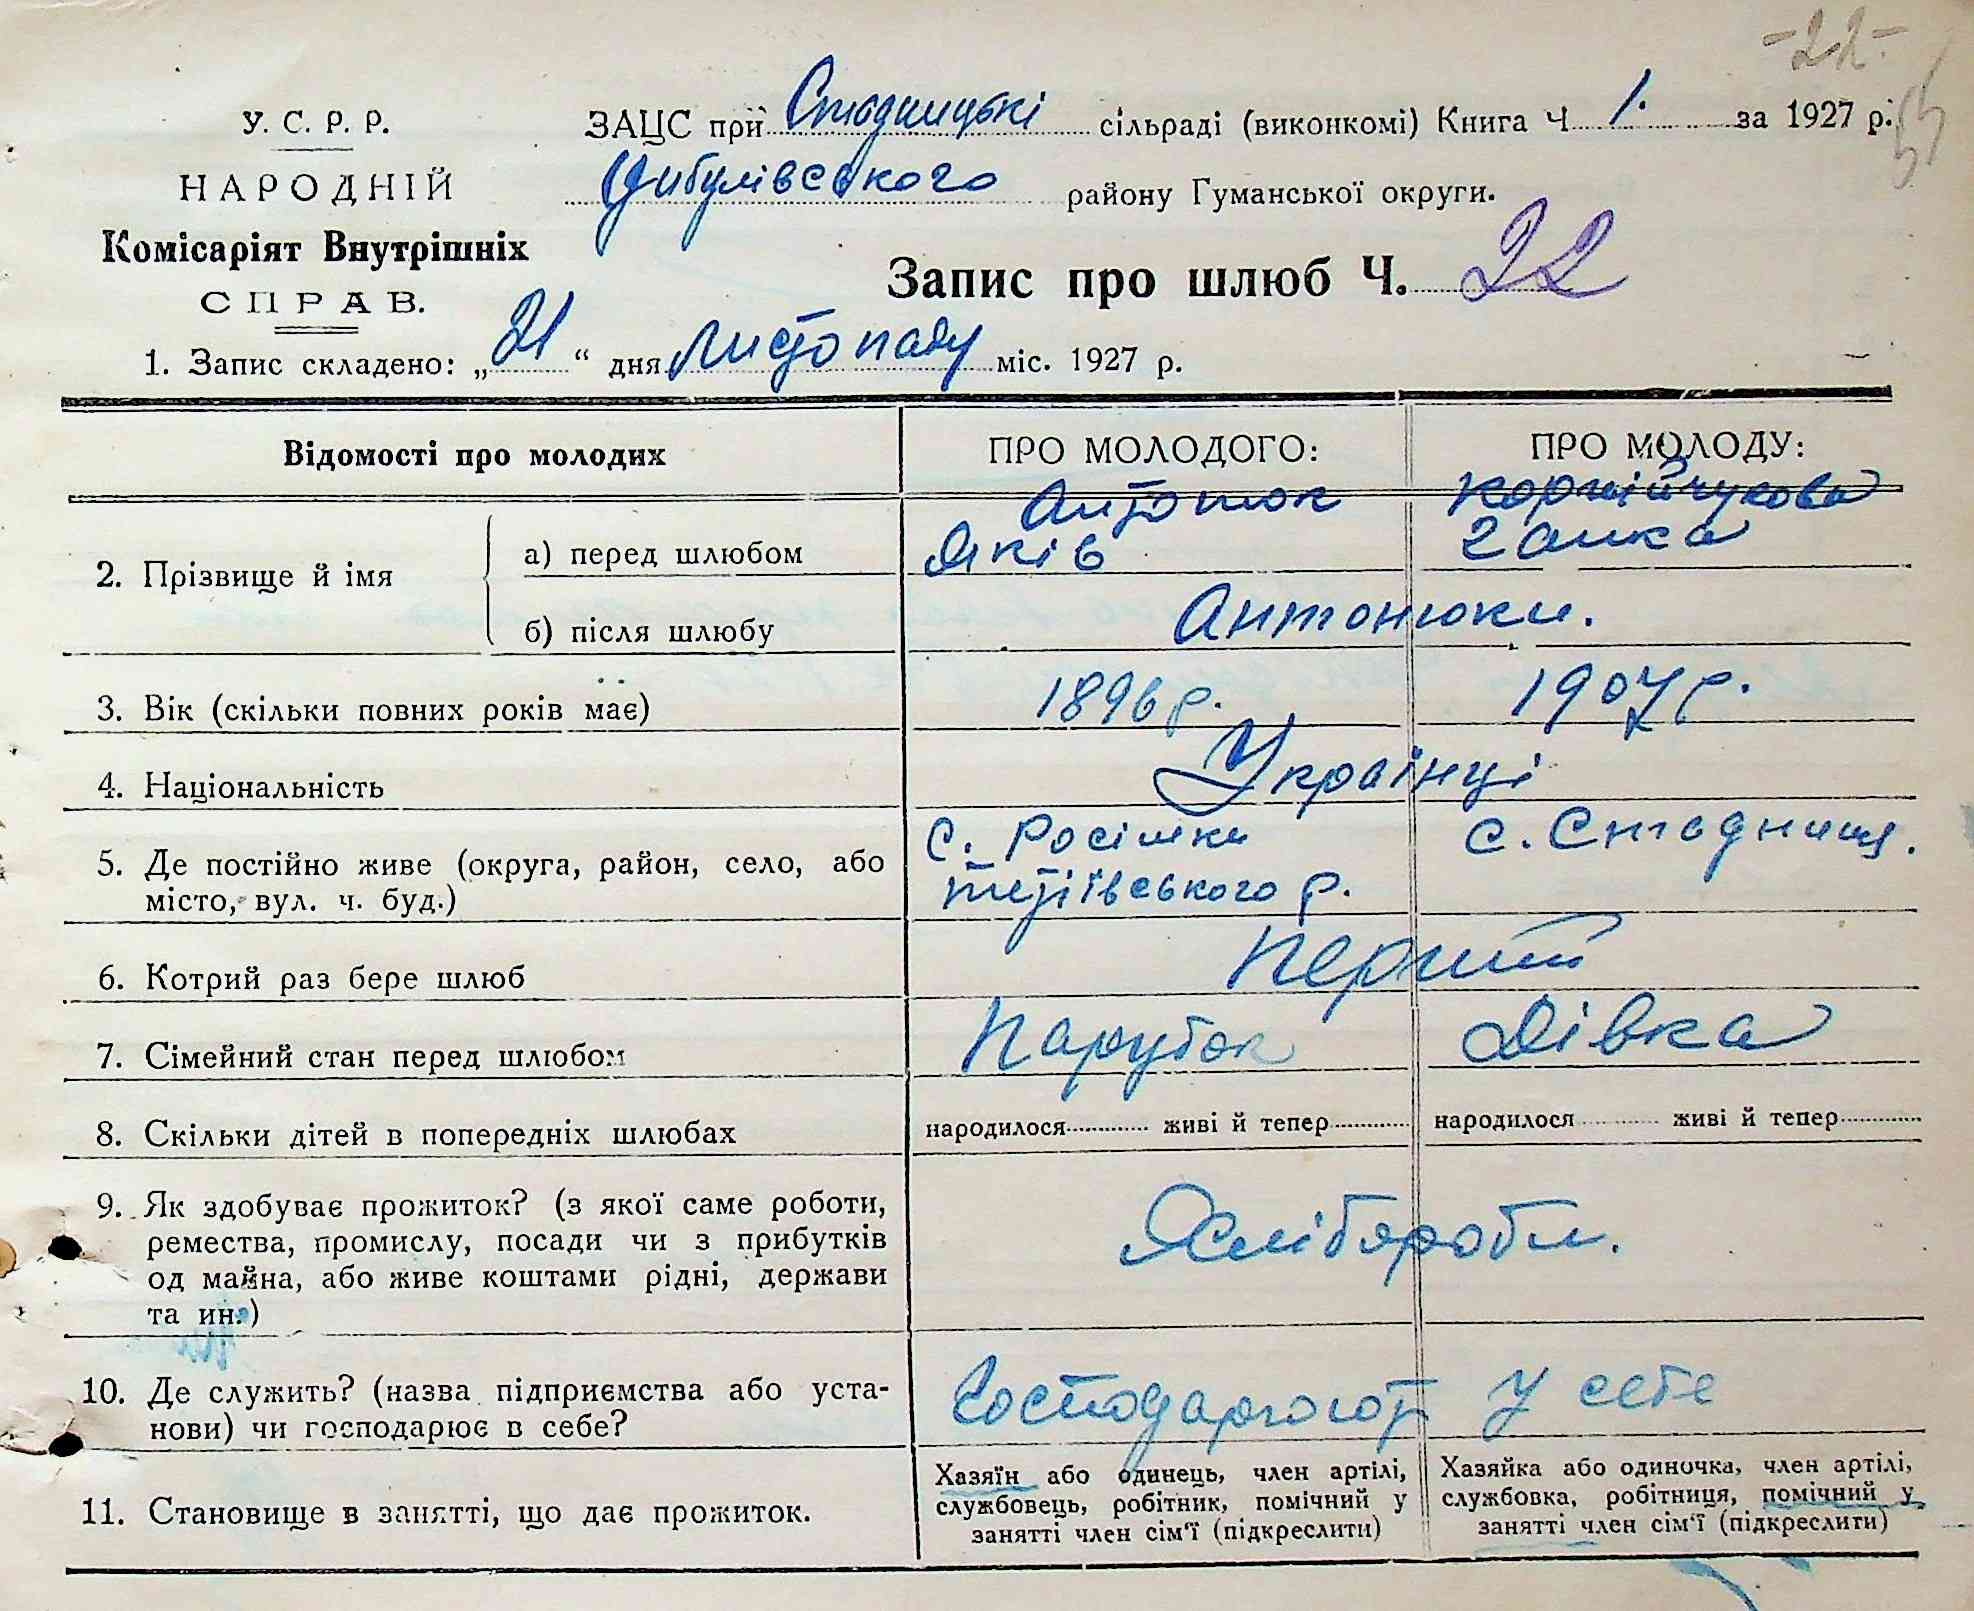 -22-
У. С. Р. Р.
НАРОДНІЙ
Комісаріят Внутрішніх
СПРАВ.
ЗАЦС при Стодницькі сільраді (виконкомі) Книга Ч 1. за 1927 р.
Цибулівського району Гуманської округи.
Запис про шлюб Ч. 22
1. Запис складено: „21“ дня Листопаду міс. 1927 р.
Відомості про молодих
ПРО МОЛОДОГО:
ПРО МОЛОДУ:
2. Прізвище й імя
а) перед шлюбом
Антонюк
Яків
Корнійчукова
Ганка
б) після шлюбу
Антонюки.
3. Вік (скільки повних років має)
1896 р.
1907 р.
4. Національність
Українці
5. Де постійно живе (округа, район, село, або
місто, вул. ч. буд.)
с. Росішки
тетіївського р.
с. Стодниця.
6. Котрий раз бере шлюб
Перший
7. Сімейний стан перед шлюбом
Парубок
Дівка
8. Скільки дітей в попередніх шлюбах
народилося живі й тепер
народилося живі й тепер
9. Як здобуває прожиток? (з якої саме роботи,
ремества, промислу, посади чи з прибутків
од майна, або живе коштами рідні, держави
та ин.)
Хлібороби.
10. Де служить? (назва підприємства або уста-
нови) чи господарює в себе?
Господарюють у себе
11. Становище в занятті, що дає прожиток.
Хазяїн або одинець, член артілі,
службовець, робітник, помічний у
занятті член сім'ї (підкреслити)
Хазяйка або одиночка, член артілі,
службовка, робітниця, помічний у
занятті член сім'ї (підкреслити)